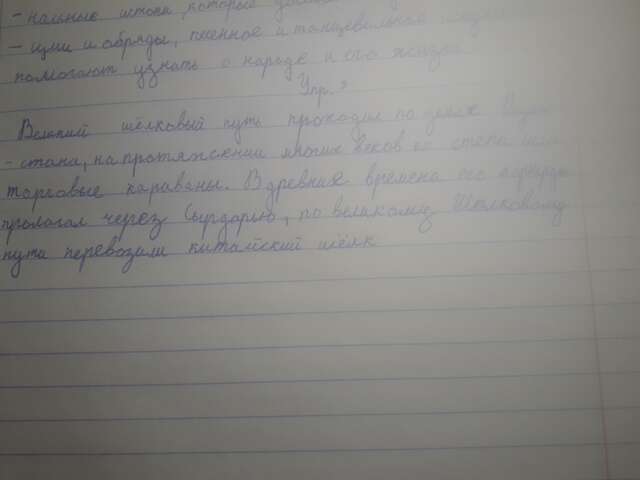 - нальные истоки, которые
- ции и обряды, песенное и танцевальное
помогают узнать о народе и его жизни
Упр.
Великий шёлковый путь проходил по земле
- стана, на протяжении многих веков по степи шли
торговые караваны. В древние времена его
пролагал через Сырдарью, по великому Шёлковому
пути перевозили китайский шёлк